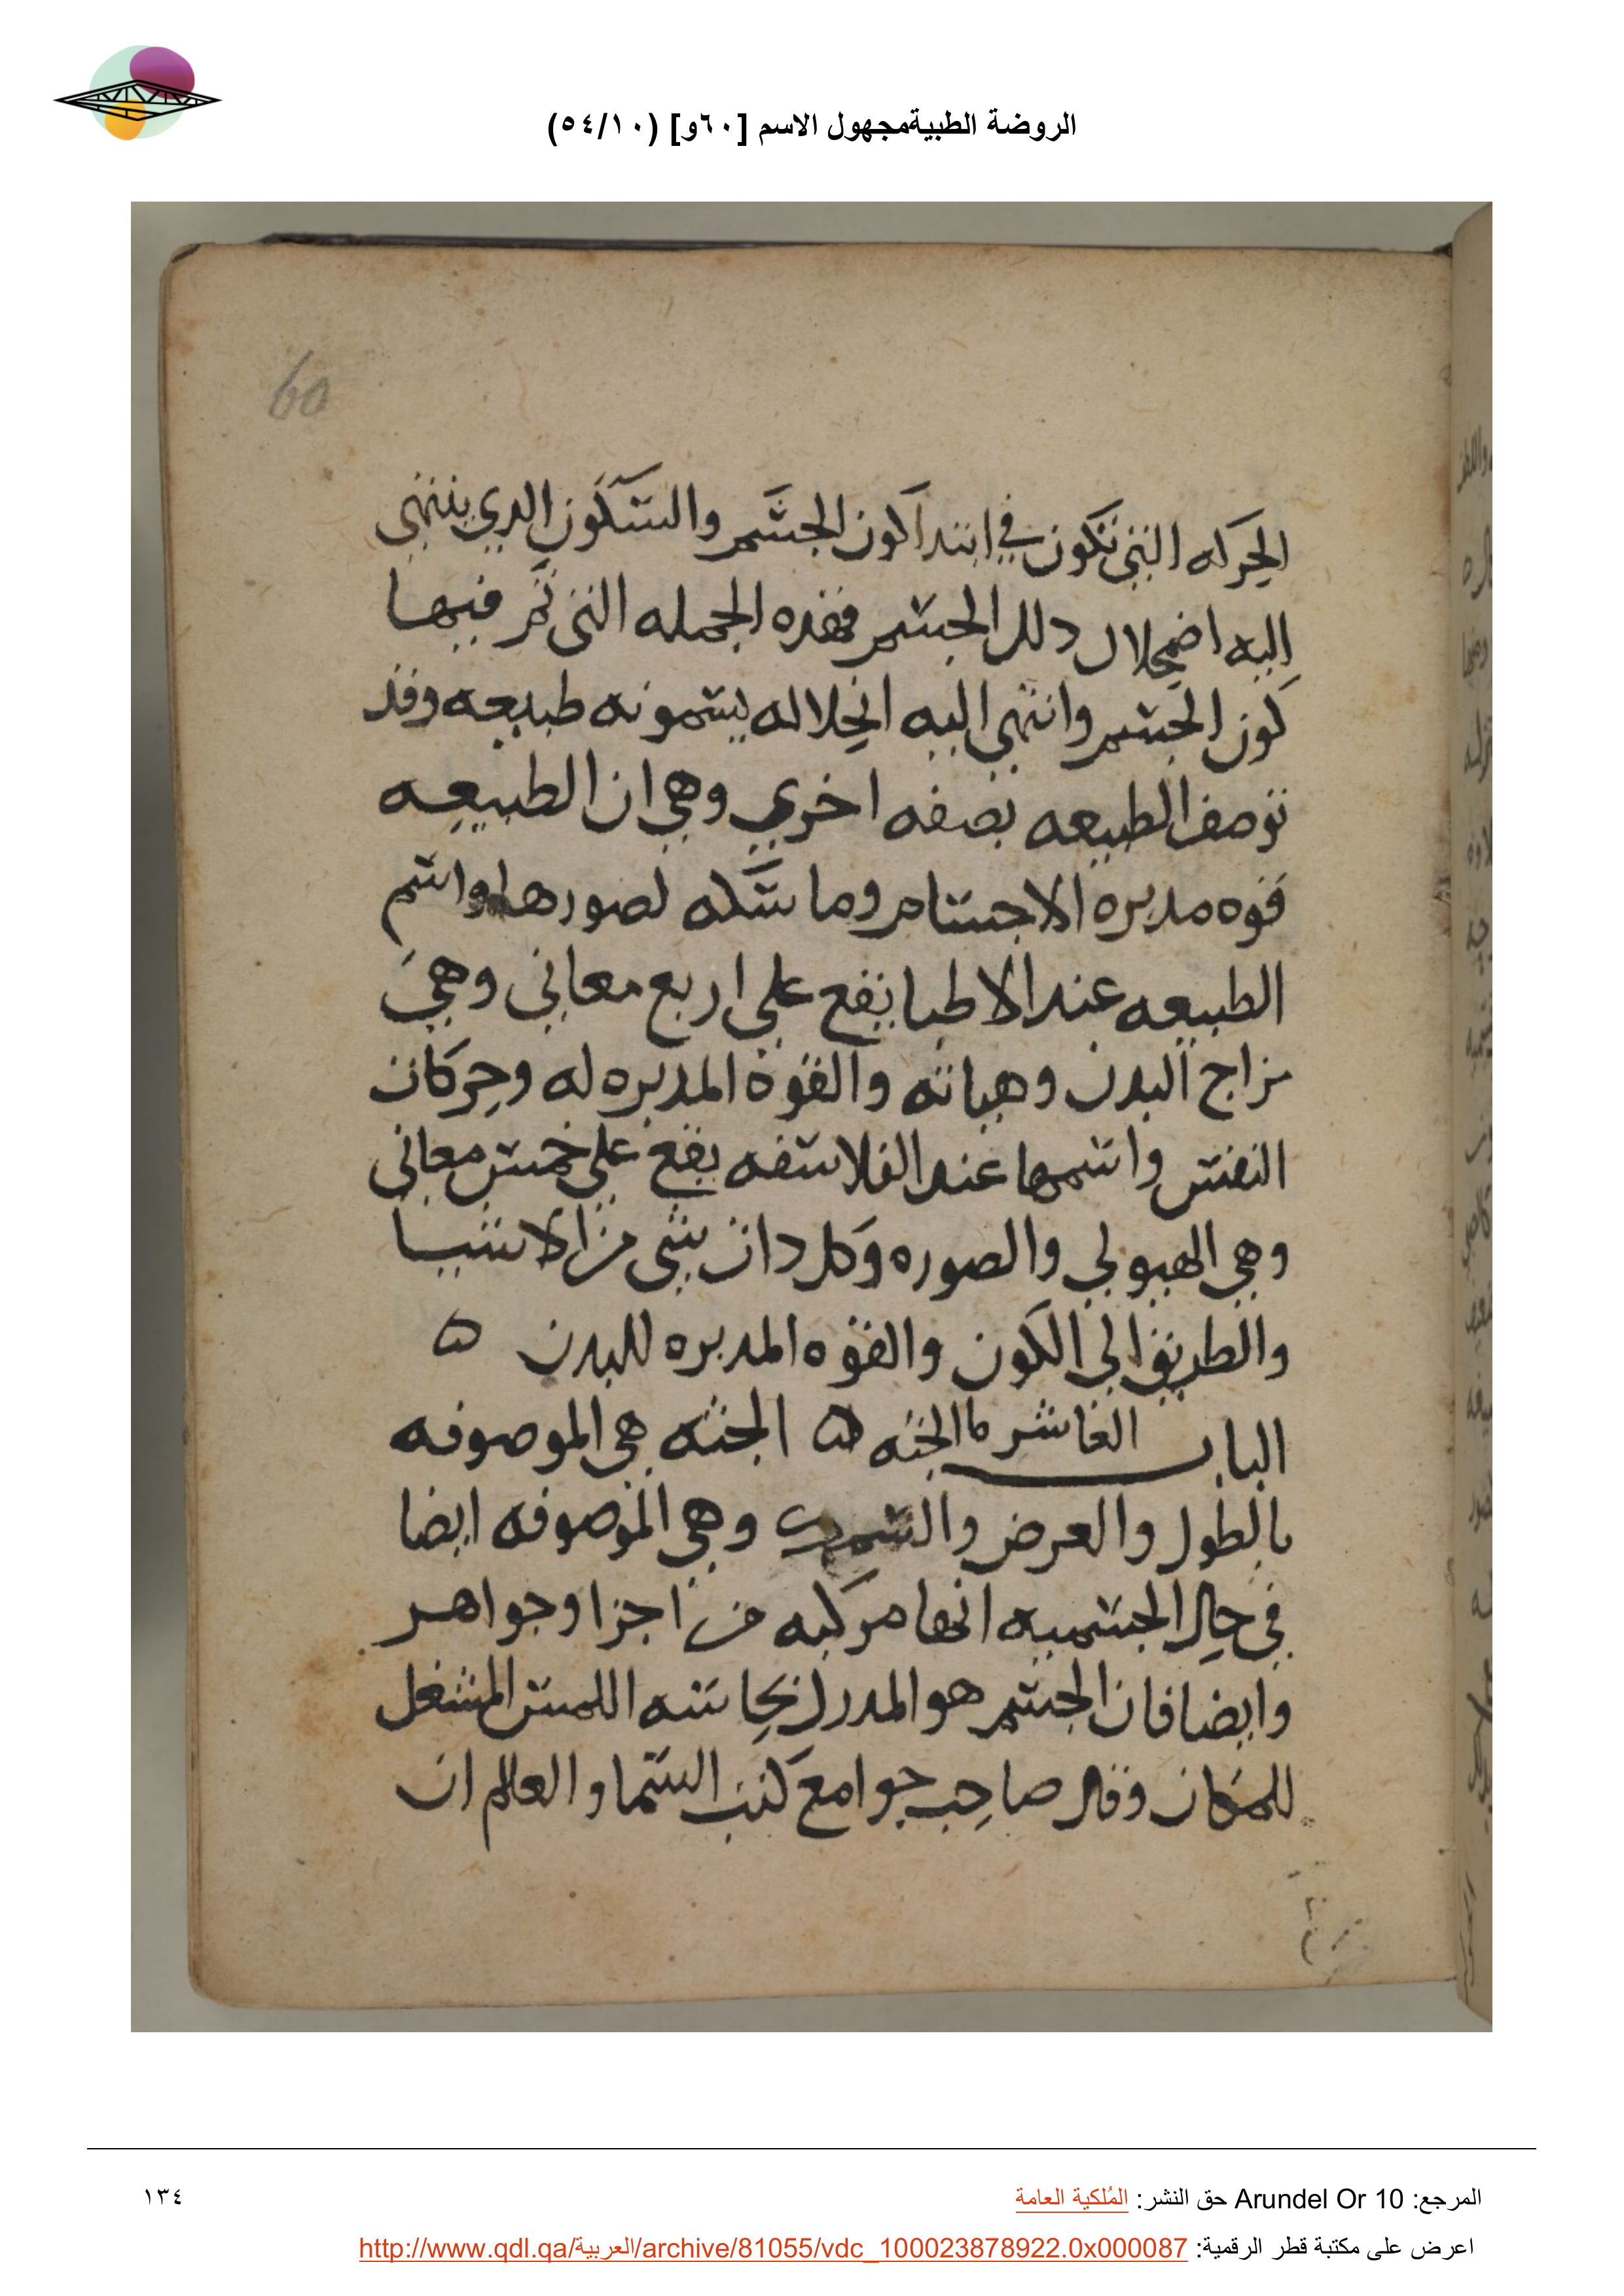 الروضة الطبيةمجهول الاسم [٦٠و] (٥٤/١٠)
60
الحركه التي تكون في ابتدا كون الجسم والسكون الدي ينتهي
اليه اضمحلال دلك الجسم فهده الجمله التي تم فيها
كون الجسم وانتهي اليه انحلاله يسمونه طبيعه وقد
توصف الطبيعه بصفه اخري وهي ان الطبيعه
قوه مدبره الاجسام وماسكه لصورها واسم
الطبيعه عند الاطبا يقع علي اربع معاني وهي
مزاج البدن وهياته والقوه المدبره له وحركات
النفس واسمها عند الفلاسفه يقع علي خمس معاني
وهي الهيولي والصوره وكل دات شي من الاشيا
والطريق الي الكون والقوه المدبره للبدن ه
الباب العاشر ما الجثه ه الجثه هي الموصوفه
بالطول والعرض والسمك وهي الموصوفه ايضا
في حال الجسميه انها مركبه من اجزا وجواهر
وايضا فان الجسم هو المدرك بحاسه اللمس المشغل
للمكان وقال صاحب جوامع كتب السما والعالم ان
المرجع: Arundel Or 10 حق النشر: المُلكية العامة
١٣٤
اعرض على مكتبة قطر الرقمية: http://www.qdl.qa/العربية/archive/81055/vdc_100023878922.0x000087